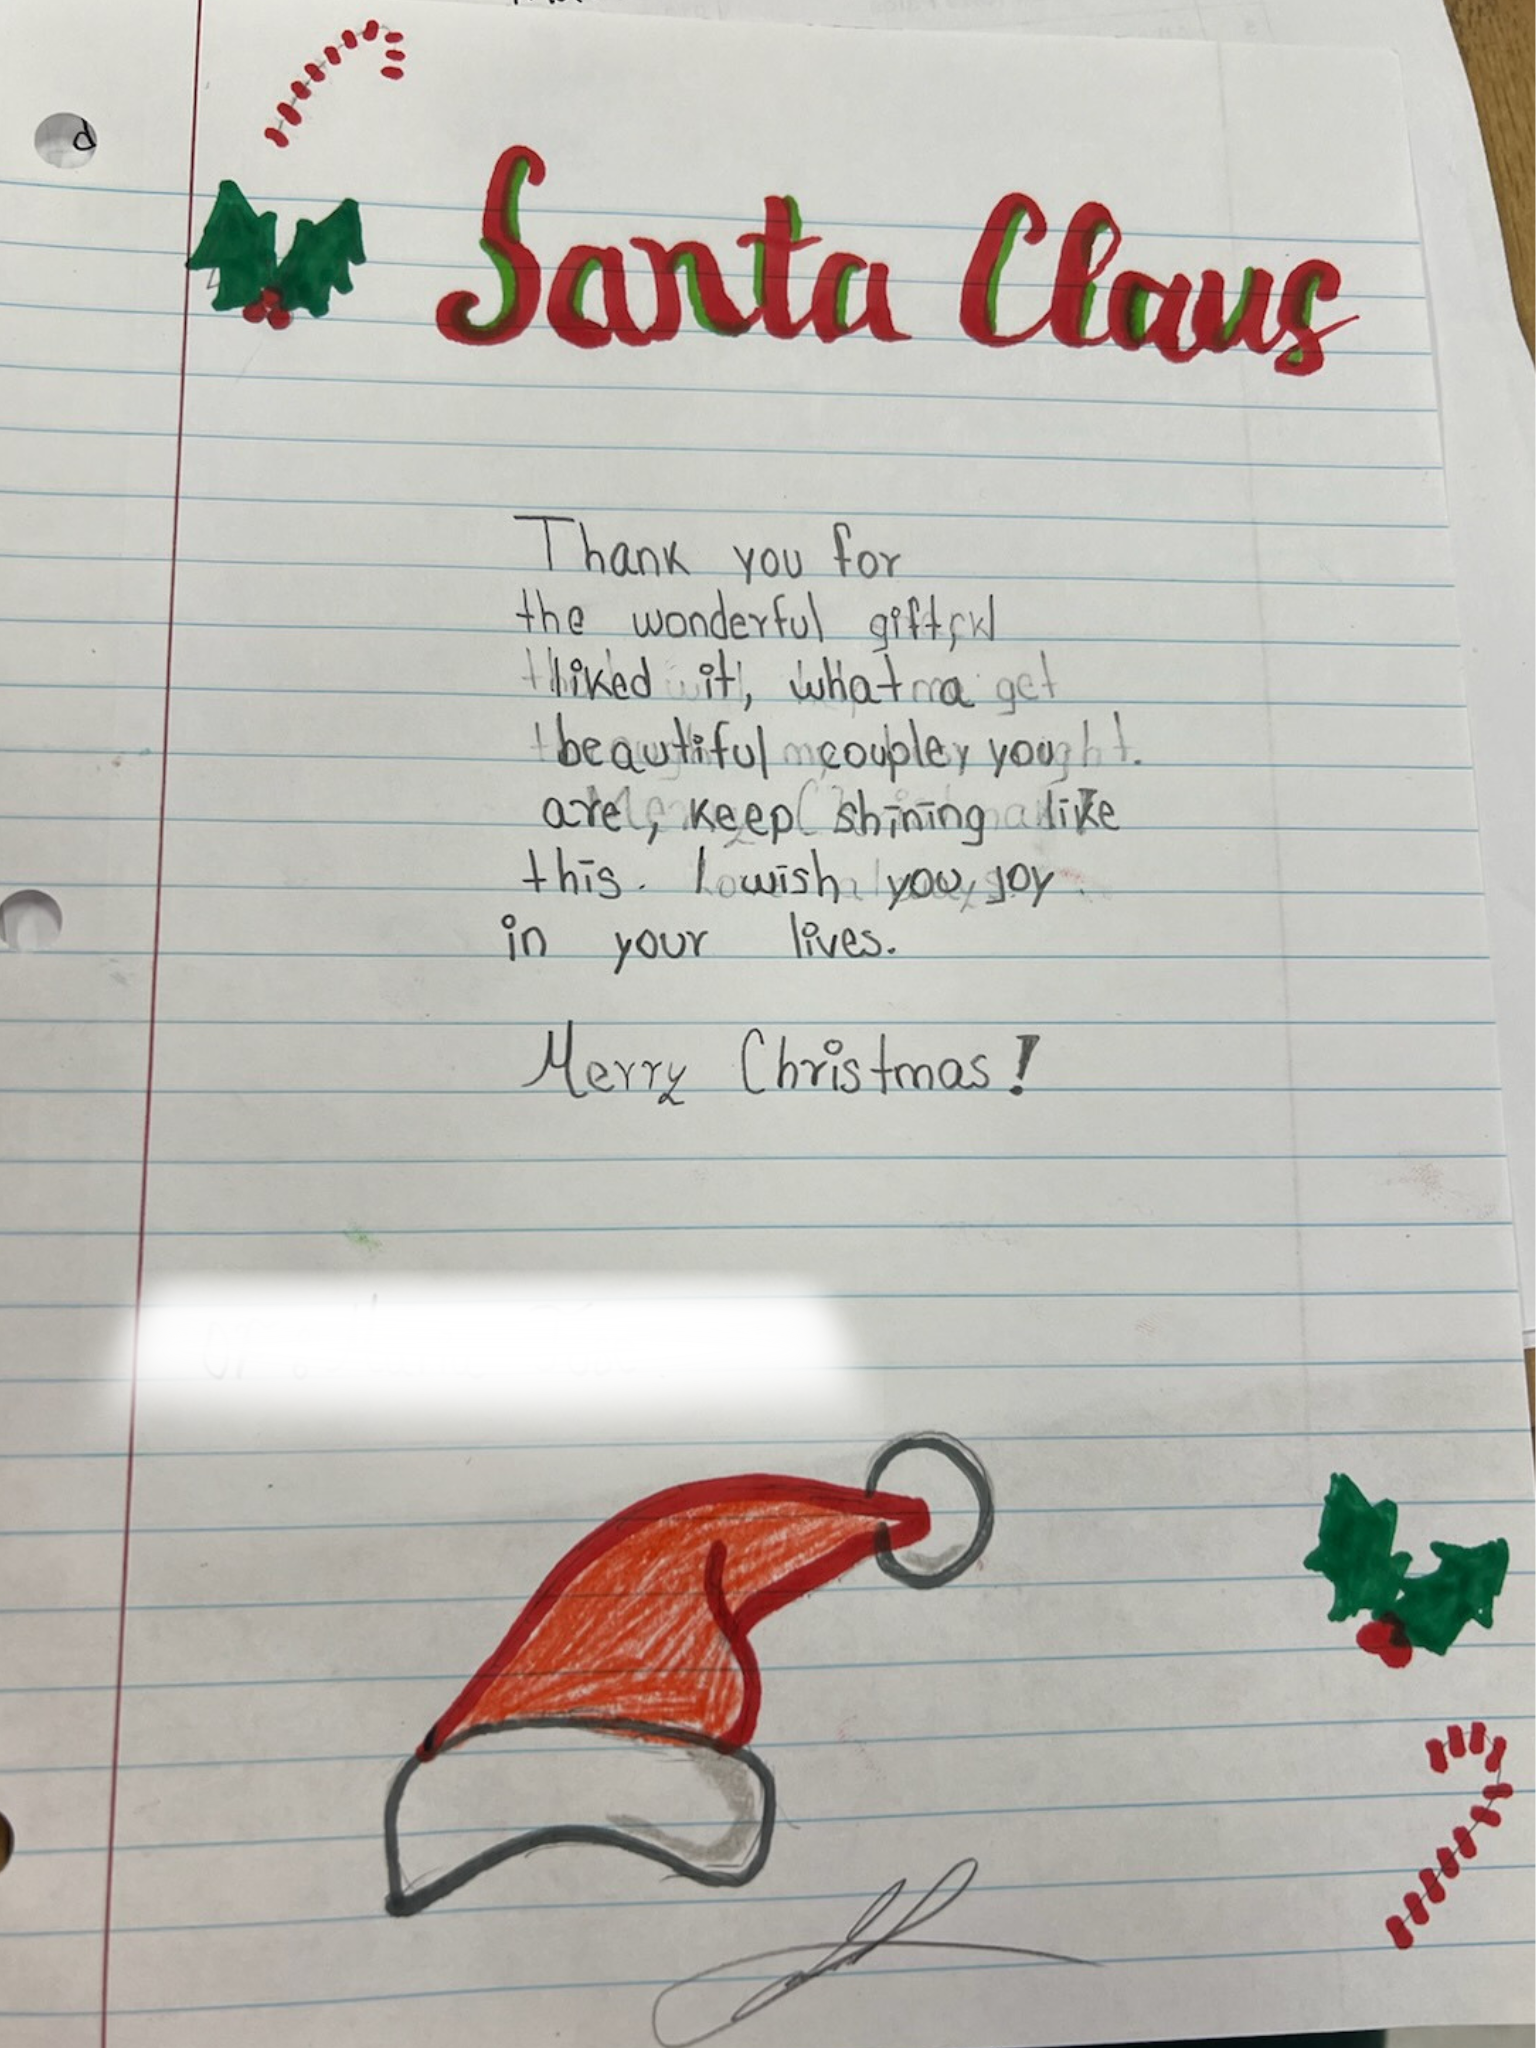 Santa Claus
Thank you for
the wonderful gift, I
liked it, what a
beautiful couple you
are, keep shining like
this. I wish you joy
in your lives.
Merry Christmas!